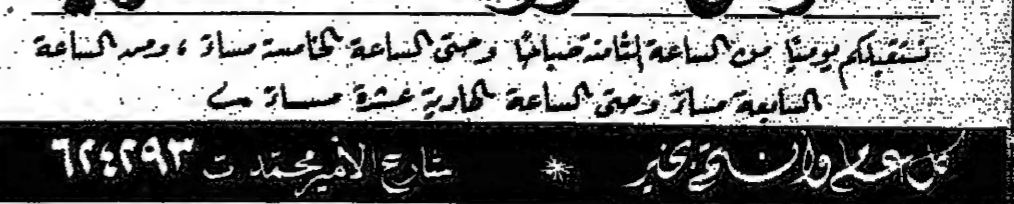 نستقبلكم يوميًا من الساعة الثامنة صباحًا وحتى الساعة الخامسة مساءً ، ومن الساعة
السابعة مساءً وحتى الساعة الحادية عشرة مساءً
كل عام وأنتم بخير * شارع الأمير محمد ت ٦٢٤٢٩٣